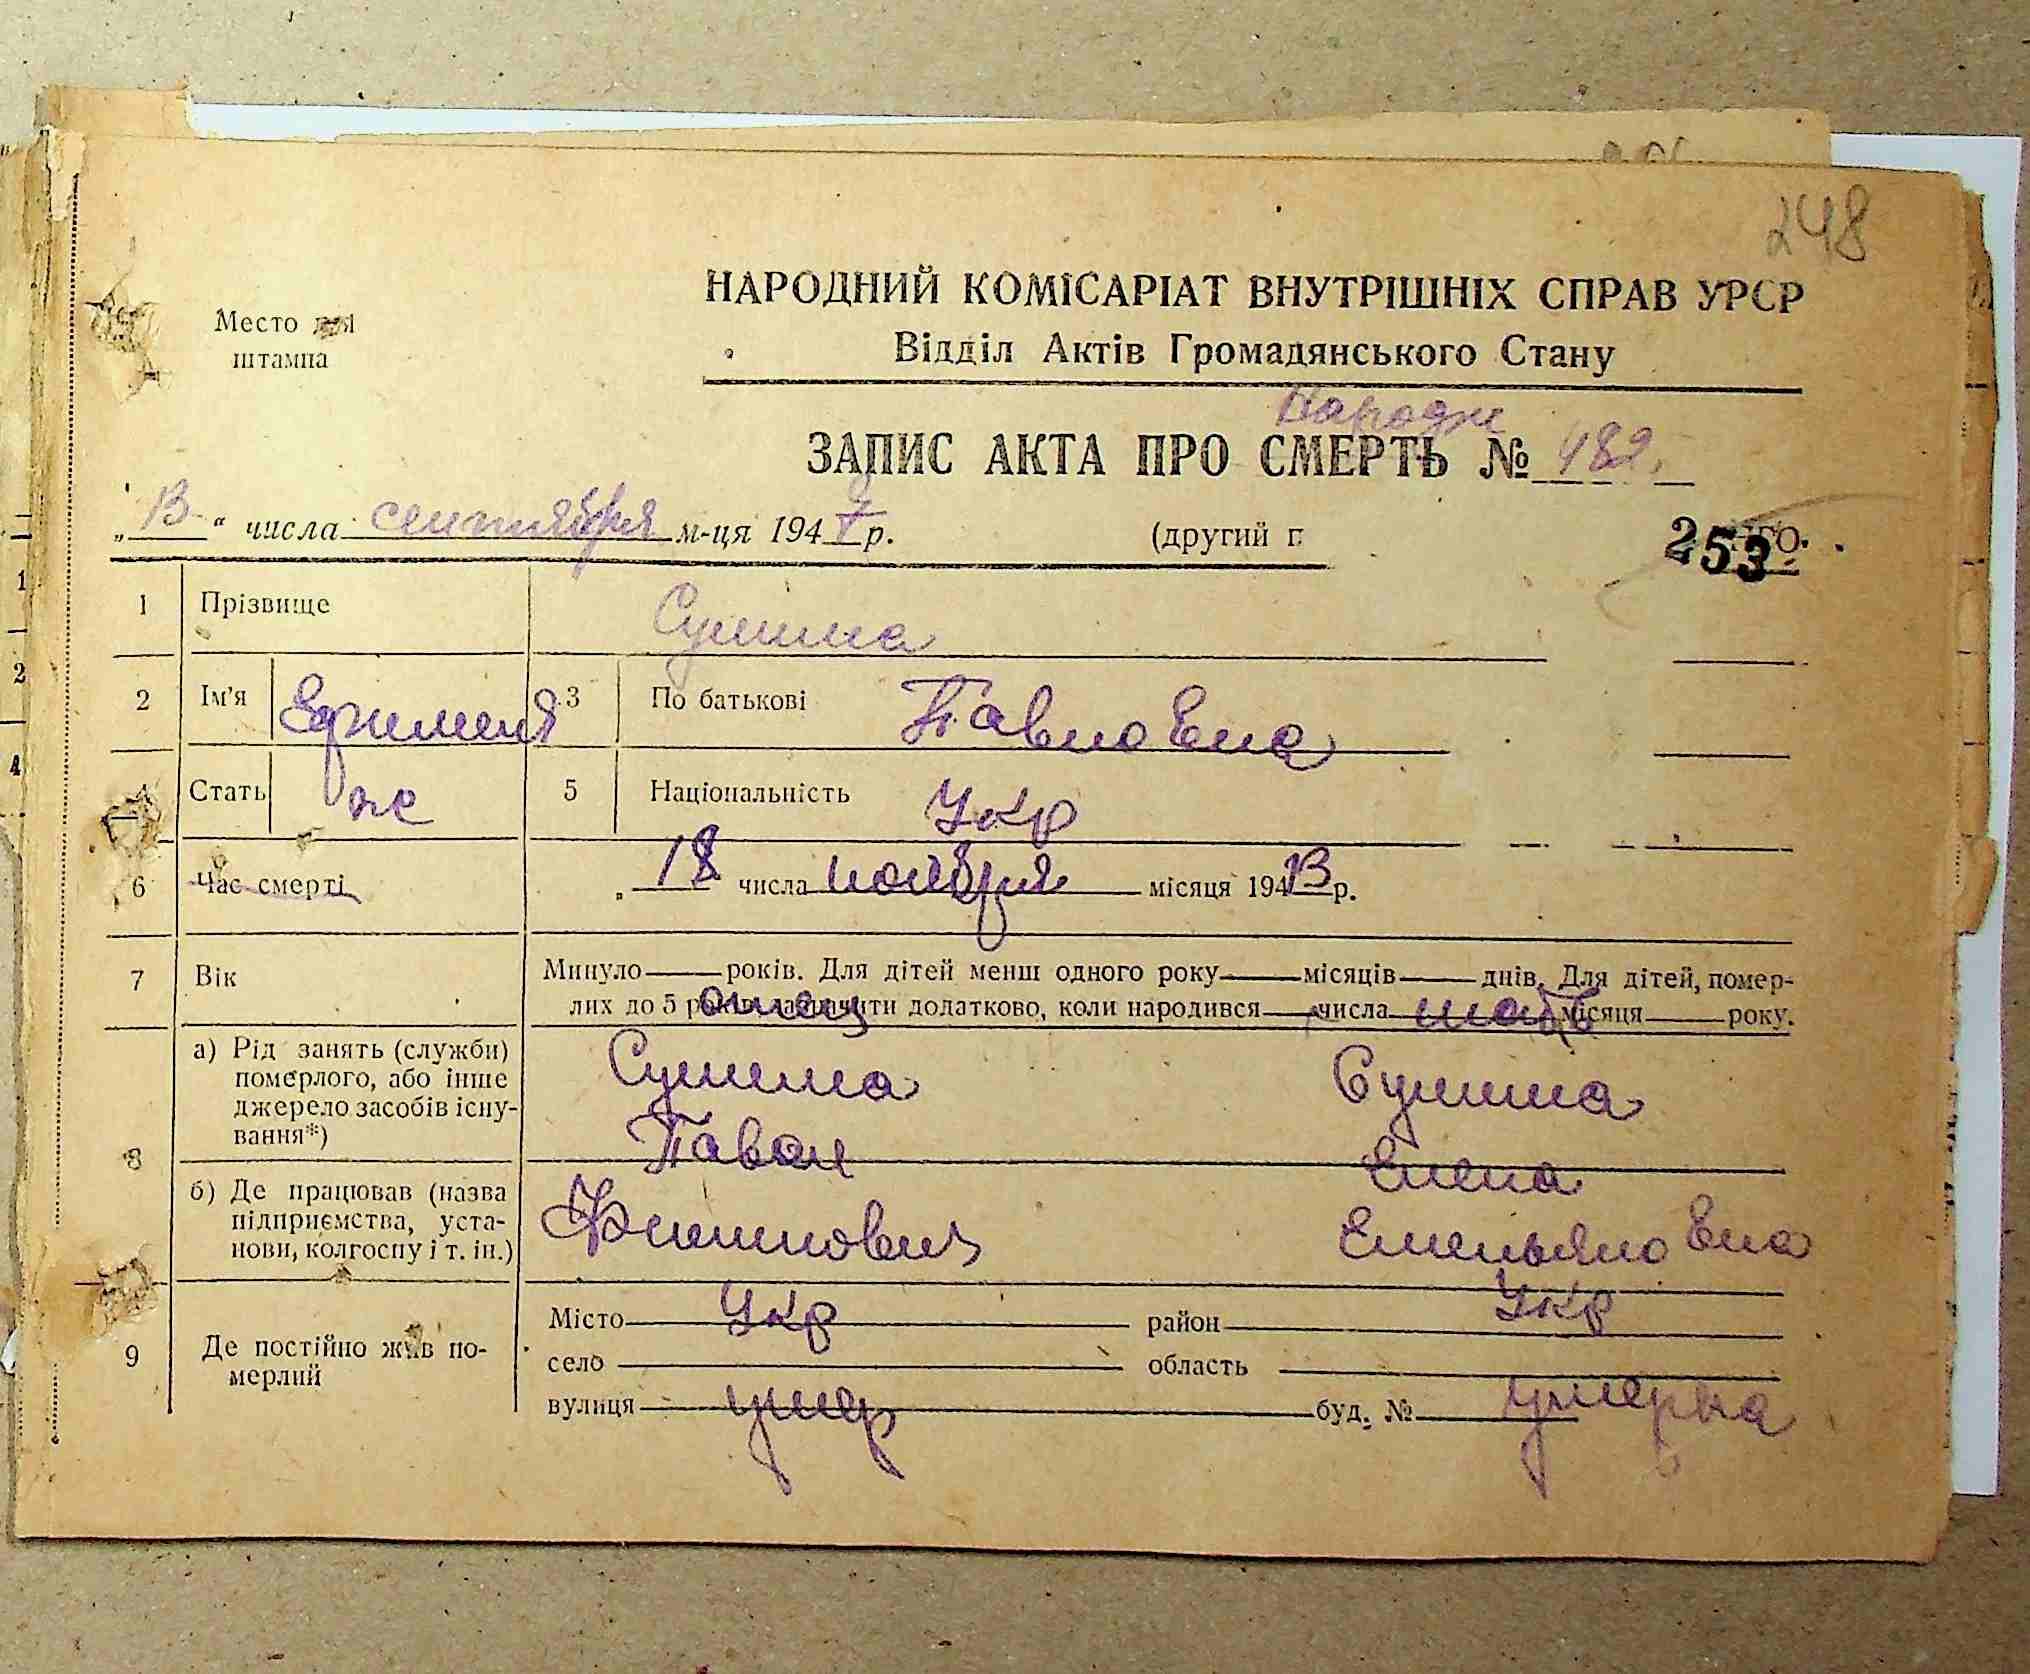 248
Место для
штампа
НАРОДНИЙ КОМІСАРІАТ ВНУТРІШНІХ СПРАВ УРСР
Відділ Актів Громадянського Стану
Народж
ЗАПИС АКТА ПРО СМЕРТЬ № 482.
„13“ числа сентября м-ця 1947 р. (другий п
253
1 Прізвище Сушина
2 Ім'я 3 По батькові Павловна
4 Стать ж 5 Національність Укр
6 Час смерті „18 числа ноября місяця 1943 р.
7 Вік Минуло років. Для дітей менш одного року місяців днів. Для дітей, помер-
лих до 5 років зазначити додатково, коли народився числа місяця року.
отец мать
8 а) Рід занять (служби)
померлого, або інше
джерело засобів існу-
вання*)
Сушина Сушина
Павел Елена
б) Де працював (назва
підприємства, уста-
нови, колгоспу і т. ін.)
Филиппович Емельяновна
9 Де постійно жив по-
мерлий
Місто Укр район Укр
село область
вулиця умер буд. № умерла
1
2
4